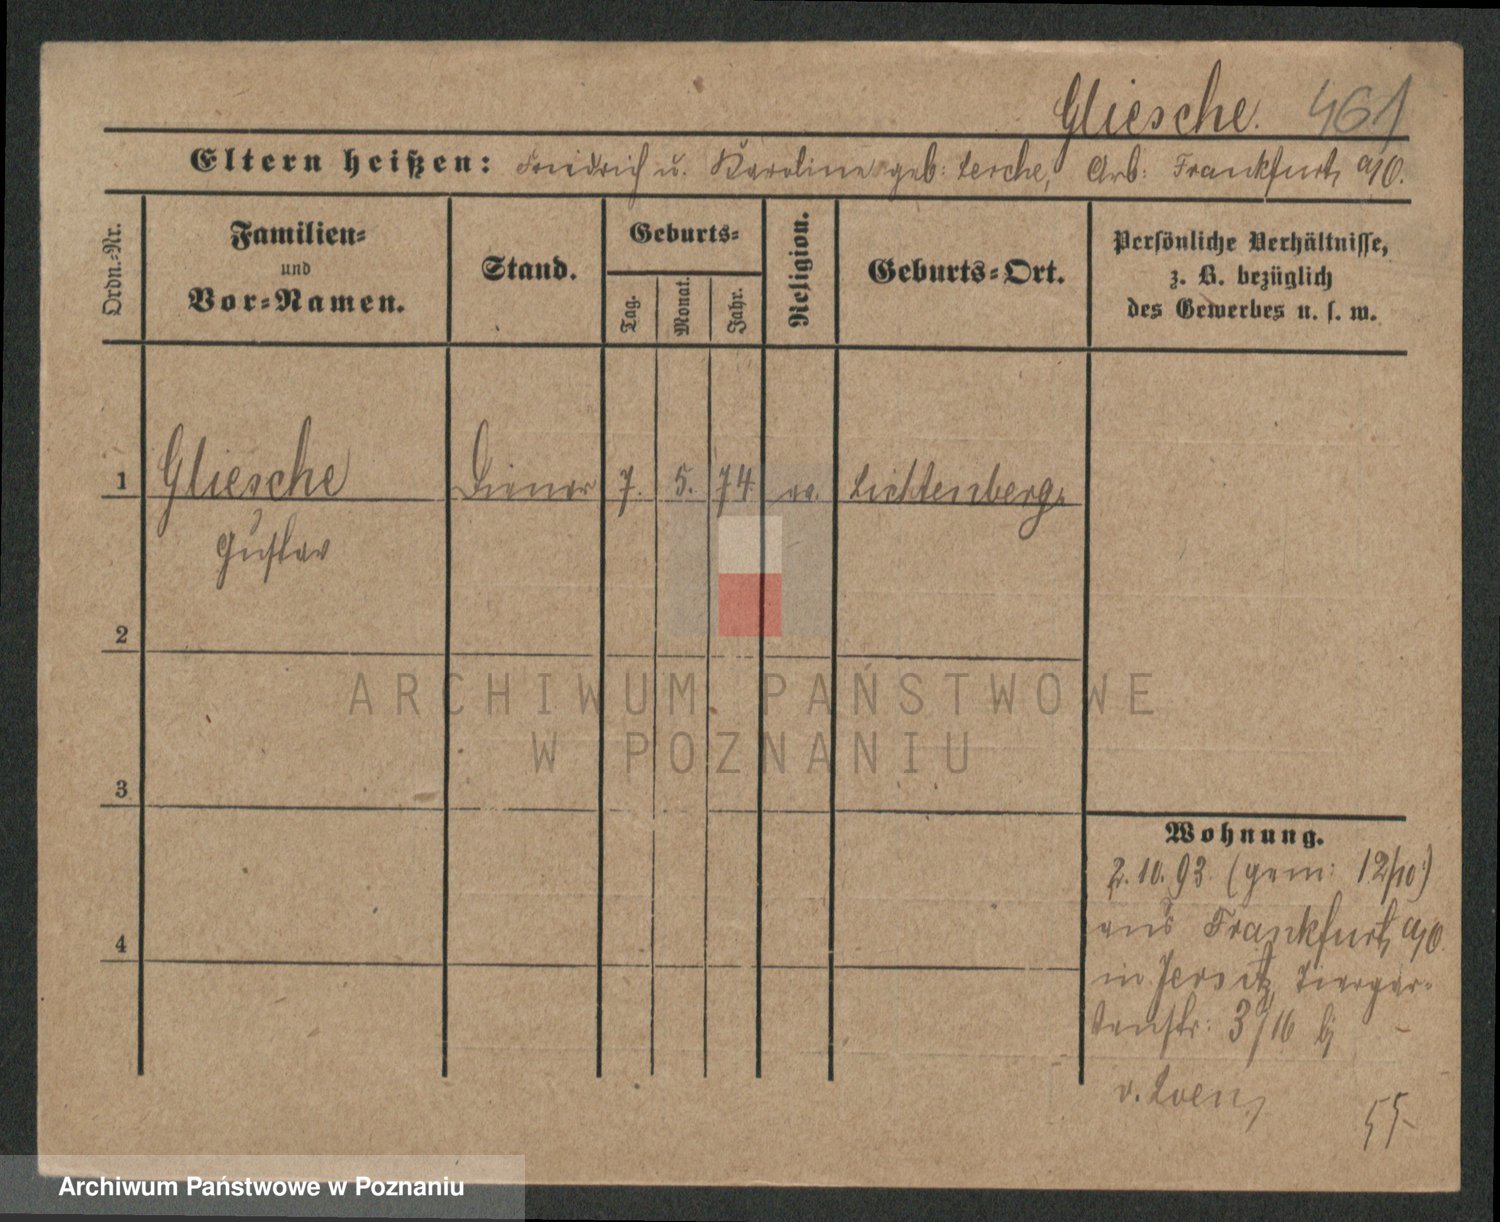 Gliesche. 461
Eltern heißen: Friedrich u. Karoline geb: Lerche, Arb: Frankfurt a/O.
Ordn.-Nr.
Familien- und Vor-Namen.
Stand.
Geburts-
Tag.
Monat.
Jahr.
Religion.
Geburts-Ort.
Persönliche Verhältnisse,
z. B. bezüglich
des Gewerbes u. s. w.
1 Gliesche Diener 7. 5. 74. ev. Lichtenberg.
Gustav
2
3
4
Wohnung.
2.10.93. (gem: 12/10.)
aus Frankfurt a/O.
in Jersitz, Tiergar-
tenstr: 3/16 bj
v. Loen,
55
ARCHIWUM PAŃSTWOWE
W POZNANIU
Archiwum Państwowe w Poznaniu